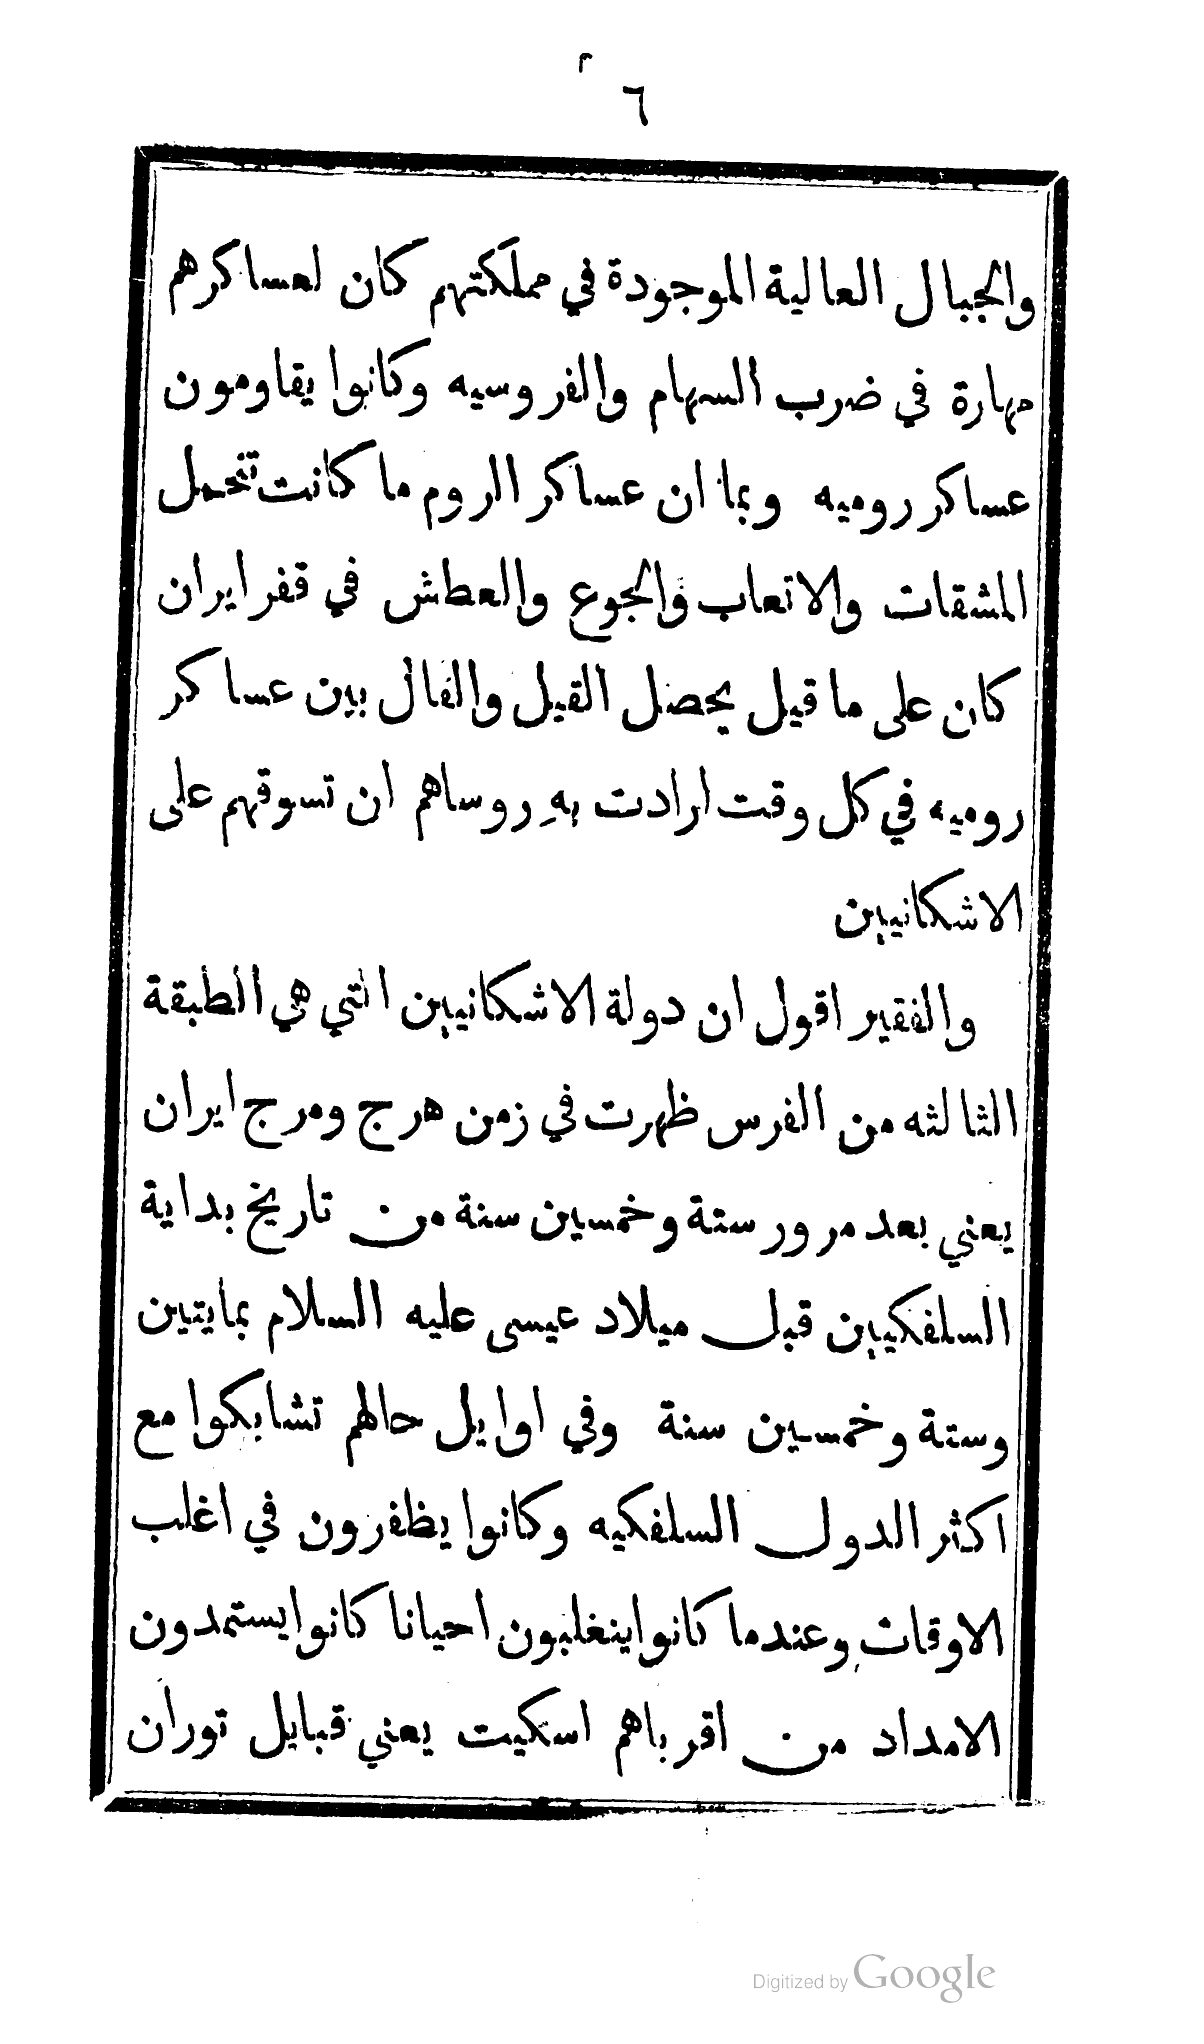 ٦
والجبال العالية الموجودة في مملكتهم كان لعساكرهم
مهارة في ضرب السهام والفروسيه وكانوا يقاومون
عساكر روميه وبما ان عساكر الروم ما كانت تتحمل
المشقات والاتعاب والجوع والعطش في قفر ايران
كان على ما قيل يحصل القيل والقال بين عساكر
روميه في كل وقت ارادت بهِ روساهم ان تسوقهم على
الاشكانيين
والفقير اقول ان دولة الاشكانيين التي هي الطبقة
الثالثه من الفرس ظهرت في زمن هرج ومرج ايران
يعني بعد مرور ستة وخمسين سنة من تاريخ بداية
السلفكيين قبل ميلاد عيسى عليه السلام بمايتين
وستة وخمسين سنة وفي اوايل حالهم تشابكوا مع
اكثر الدول السلفكيه وكانوا يظفرون في اغلب
الاوقات وعندما كانوا ينغلبون احيانا كانوا يستمدون
الامداد من اقرباهم اسكيت يعني قبايل توران
Digitized by Google